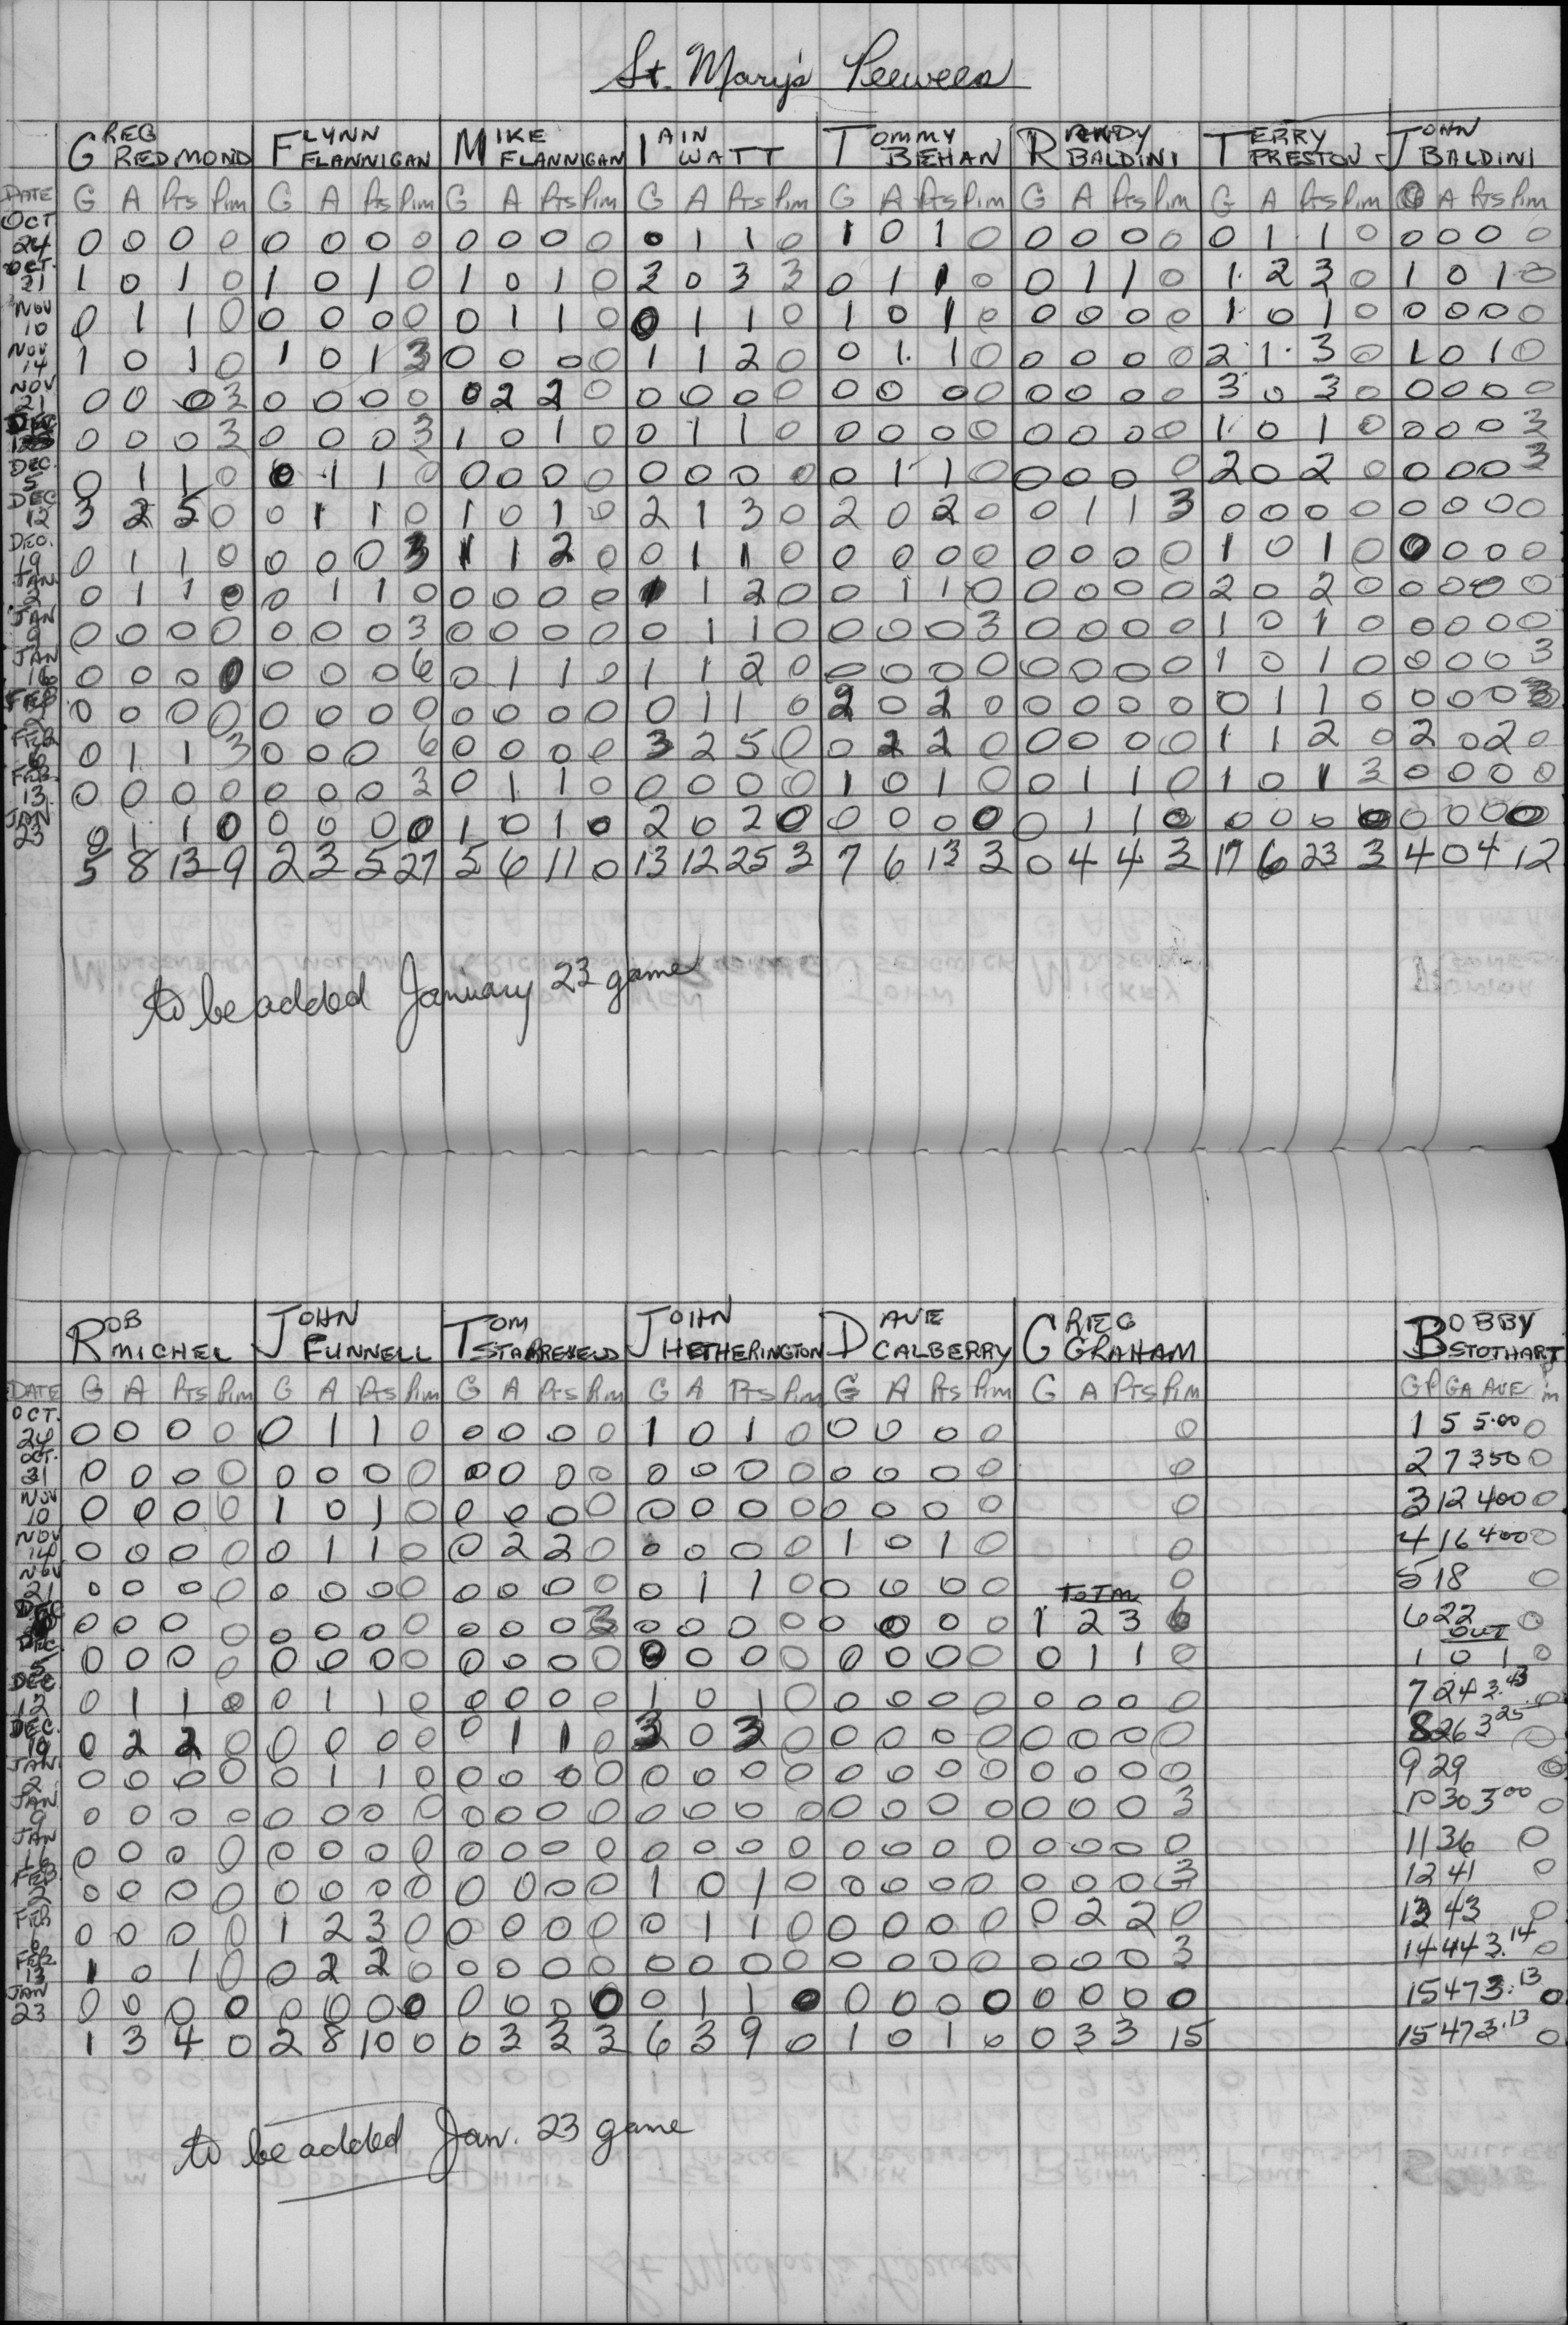 St. Mary's Peewees
GREG REDMOND FLYNN FLANNIGAN MIKE FLANNIGAN IAIN WATT TOMMY BEHAN RANDY BALDINI TERRY PRESTON JOHN BALDINI
DATE G A Pts Pim G A Pts Pim G A Pts Pim G A Pts Pim G A Pts Pim G A Pts Pim G A Pts Pim G A Pts Pim
OCT 24 0 0 0 0 0 0 0 0 0 0 0 0 0 1 1 0 1 0 1 0 0 0 0 0 0 1 1 0 0 0 0 0
OCT. 21 1 0 1 0 1 0 1 0 1 0 1 0 3 0 3 3 0 1 1 0 0 1 1 0 1 2 3 0 1 0 1 0
NOV 10 0 1 1 0 0 0 0 0 0 1 1 0 0 1 1 0 1 0 1 0 0 0 0 0 1 0 1 0 0 0 0 0
NOV 14 1 0 1 0 1 0 1 3 0 0 0 0 1 1 2 0 0 1 1 0 0 0 0 0 2 1 3 0 1 0 1 0
NOV 21 0 0 0 3 0 0 0 0 0 2 2 0 0 0 0 0 0 0 0 0 0 0 0 0 3 0 3 0 0 0 0 0
DEC 0 0 0 3 0 0 0 3 1 0 1 0 0 1 1 0 0 0 0 0 0 0 0 0 1 0 1 0 0 0 0 3
DEC. 5 0 1 1 0 0 1 1 0 0 0 0 0 0 0 0 0 0 1 1 0 0 0 0 0 2 0 2 0 0 0 0 3
DEC 12 3 2 5 0 0 1 1 0 1 0 1 0 2 1 3 0 2 0 2 0 0 1 1 3 0 0 0 0 0 0 0 0
DEC. 19 0 1 1 0 0 0 0 3 1 1 2 0 0 1 1 0 0 0 0 0 0 0 0 0 1 0 1 0 0 0 0 0
JAN. 2 0 1 1 0 0 1 1 0 0 0 0 0 1 1 2 0 0 1 1 0 0 0 0 0 2 0 2 0 0 0 0 0
JAN 9 0 0 0 0 0 0 0 3 0 0 0 0 0 1 1 0 0 0 0 3 0 0 0 0 1 0 1 0 0 0 0 0
JAN 16 0 0 0 0 0 0 0 6 0 1 1 0 1 1 2 0 0 0 0 0 0 0 0 0 1 0 1 0 0 0 0 3
FEB 2 0 0 0 0 0 0 0 0 0 0 0 0 0 1 1 0 2 0 2 0 0 0 0 0 0 1 1 0 0 0 0 3
FEB 6 0 1 1 3 0 0 0 6 0 0 0 0 3 2 5 0 0 2 2 0 0 0 0 0 1 1 2 0 2 0 2 0
FEB. 13 0 0 0 0 0 0 0 3 0 1 1 0 0 0 0 0 1 0 1 0 0 1 1 0 1 0 1 3 0 0 0 0
JAN 23 0 1 1 0 0 0 0 0 1 0 1 0 2 0 2 0 0 0 0 0 0 1 1 0 0 0 0 0 0 0 0 0
5 8 13 9 2 3 5 27 5 6 11 0 13 12 25 3 7 6 13 3 0 4 4 3 17 6 23 3 4 0 4 12
to be added January 23 game
ROB MICHEL JOHN FUNNELL TOM STARREVELD JOHN HETHERINGTON DAVE CALBERRY GREG GRAHAM BOBBY STOTHART
DATE G A Pts Pim G A Pts Pim G A Pts Pim G A Pts Pim G A Pts Pim G A Pts Pim GP GA AVE Pim
OCT. 24 0 0 0 0 0 1 1 0 0 0 0 0 1 0 1 0 0 0 0 0 0 1 5 5.00 0
OCT. 31 0 0 0 0 0 0 0 0 0 0 0 0 0 0 0 0 0 0 0 0 0 2 7 3 50 0
NOV 10 0 0 0 0 1 0 1 0 0 0 0 0 0 0 0 0 0 0 0 0 0 3 12 4 00 0
NOV 14 0 0 0 0 0 1 1 0 0 2 2 0 0 0 0 0 1 0 1 0 0 4 16 4 00 0
NOV 21 0 0 0 0 0 0 0 0 0 0 0 0 0 1 1 0 0 0 0 0 TOTAL 0 5 18 0
DEC 0 0 0 0 0 0 0 0 0 0 0 3 0 0 0 0 0 0 0 0 1 2 3 6 6 22 0
DEC. 5 0 0 0 0 0 0 0 0 0 0 0 0 0 0 0 0 0 0 0 0 0 1 1 0 OUT 1 0 1 0
DEC 12 0 1 1 0 0 1 1 0 0 0 0 0 1 0 1 0 0 0 0 0 0 0 0 0 7 24 3.43 0
DEC. 19 0 2 2 0 0 0 0 0 0 1 1 0 3 0 3 0 0 0 0 0 0 0 0 0 8 26 3 25 0
JAN. 2 0 0 0 0 0 1 1 0 0 0 0 0 0 0 0 0 0 0 0 0 0 0 0 0 9 29 0
JAN 9 0 0 0 0 0 0 0 0 0 0 0 0 0 0 0 0 0 0 0 0 0 0 0 3 10 30 3 00 0
JAN 16 0 0 0 0 0 0 0 0 0 0 0 0 0 0 0 0 0 0 0 0 0 0 0 0 11 36 0
FEB 2 0 0 0 0 0 0 0 0 0 0 0 0 1 0 1 0 0 0 0 0 0 0 0 3 12 41 0
FEB 6 0 0 0 0 1 2 3 0 0 0 0 0 0 1 1 0 0 0 0 0 0 2 2 0 13 43 0
FEB. 13 1 0 1 0 0 2 2 0 0 0 0 0 0 0 0 0 0 0 0 0 0 0 0 3 14 44 3.14 0
JAN 23 0 0 0 0 0 0 0 0 0 0 0 0 0 1 1 0 0 0 0 0 0 0 0 0 15 47 3.13 0
1 3 4 0 2 8 10 0 0 3 3 3 6 3 9 0 1 0 1 0 0 3 3 15 15 47 3.13 0
to be added Jan. 23 game